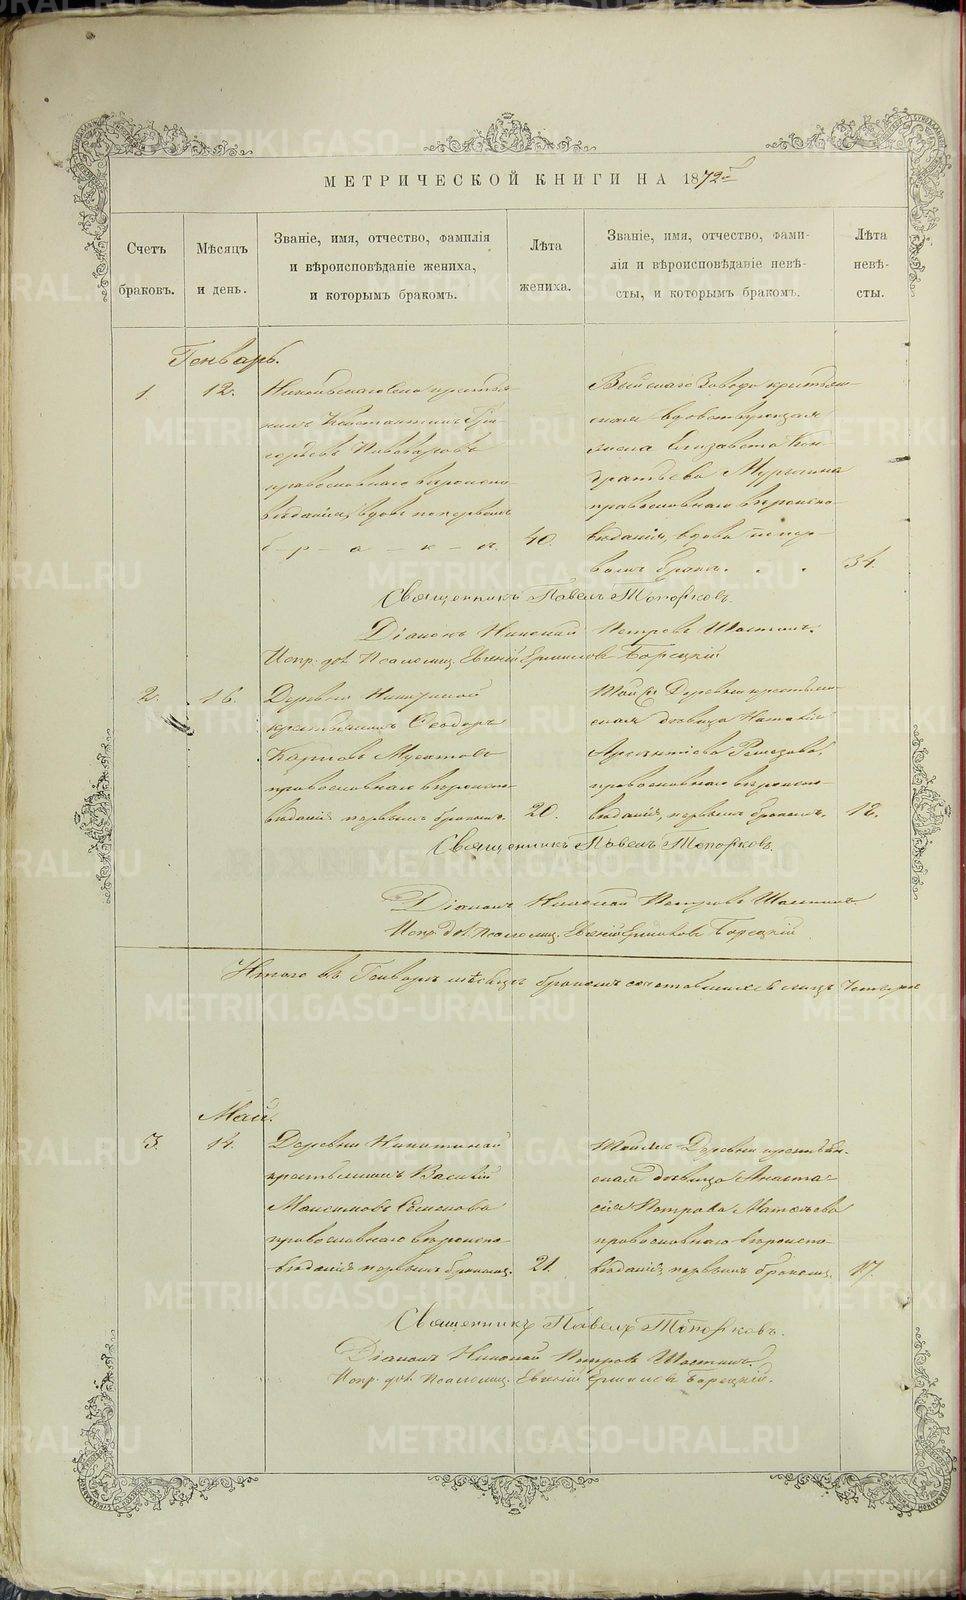 МЕТРИЧЕСКОЙ КНИГИ НА 1872й
Счетъ браковъ.
Мѣсяцъ и день.
Званіе, имя, отчество, фамилія
и вѣроисповѣданіе жениха,
и которымъ бракомъ.
Лѣта жениха.
Званіе, имя, отчество, фами-
лія и вѣроисповѣданіе невѣ-
сты, и которымъ бракомъ.
Лѣта невѣ-
сты.
Генварь.
1
12.
Николаевскаго Села крестья-
нинъ Константинъ Гри-
горьевъ Пивоваровъ
православнаго вѣроиспо-
вѣданія, вдовъ по первомъ
б-р-а-к-ѣ.
40.
крестьян-
ская вдовствующая
жена Елизавета Кон-
дратьева
православнаго вѣроиспо-
вѣданія, вдова по пер-
вомъ бракѣ.
34.
Священникъ Павелъ Топорковъ.
Діаконъ Николай Петровъ
Испр. дол. Псаломщ. Евгеній Ермиловъ Борецкій
2.
16.
Деревни Никитиной
крестьянинъ Ѳеодоръ
Карповъ Мусатовъ
православнаго вѣроиспо-
вѣданія первымъ бракомъ.
20.
Той же Деревни крестьян-
ская дѣвица Наталія
Арсентіева
православнаго вѣроиспо-
вѣданія, первымъ бракомъ.
18.
Священникъ Павелъ Топорковъ.
Діаконъ Николай Петровъ
Испр. дол. Псаломщ. Евгеній Ермиловъ Борецкій
Итого въ Генварѣ мѣсяцѣ бракомъ сочетавшихся лицъ Четыре
Май.
3.
14.
Деревни Никитиной
крестьянинъ Василій
Максимовъ Семеновъ
православнаго вѣроиспо-
вѣданія первымъ бракомъ.
21.
Той же Деревни крестьян-
ская дѣвица Анаста-
сія Петрова Матвѣева
православнаго вѣроиспо-
вѣданія, первымъ бракомъ.
17.
Священникъ Павелъ Топорковъ.
Діаконъ Николай Петровъ
Испр. дол. Псаломщ. Евгеній Ермиловъ Борецкій.
METRIKI.GASO-URAL.RU